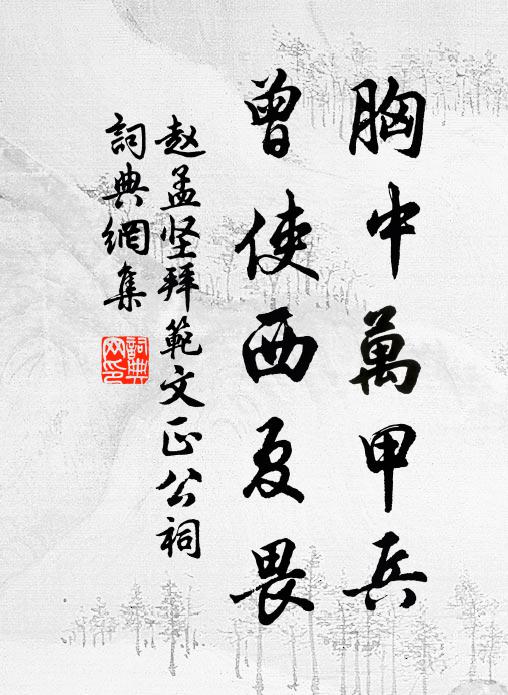 胸中萬甲兵
曾使西夏畏
赵孟坚拜範文正公祠
詞典網集
詞典
网印